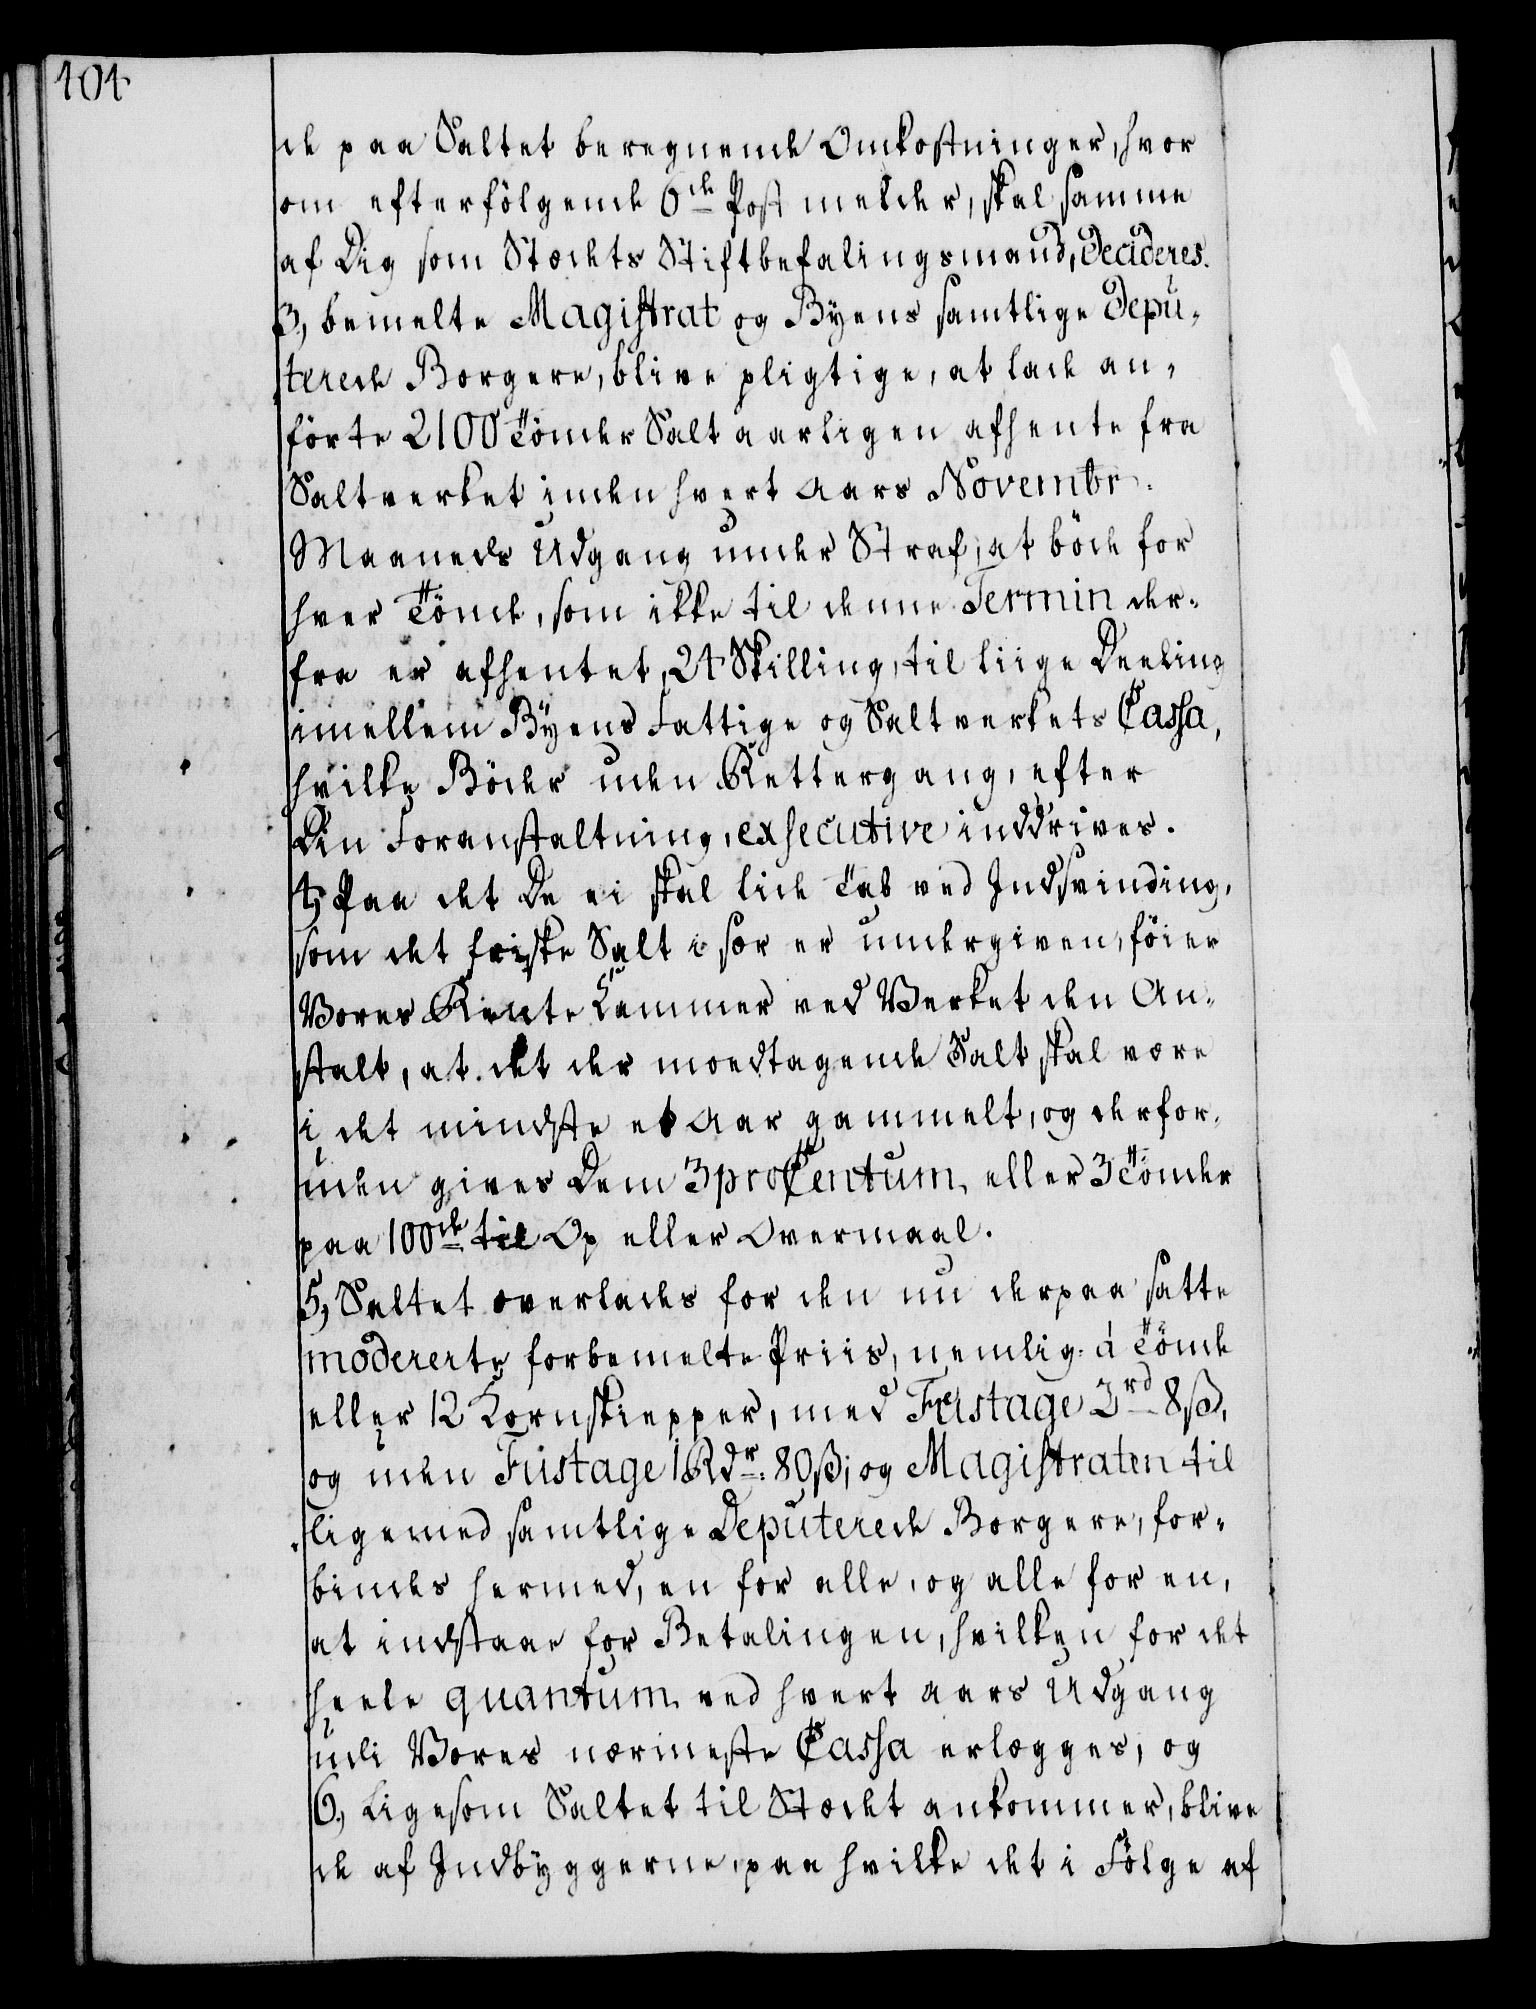 404
de paa Saltet beregnende Omkostninger, hvor
om efterfölgende 6de Post melder, skal samme
af Dig som Stædets Stiftbefalingsmand, decideres.
3, bemelte Magistrat og Byens samtlige Depu-
terede Borgere, blive pligtige, at lade an-
förte 2100 Tönder Salt aarligen afhente fra
Saltverket inden hvert Aars Novembr.
Maaneds Udgang under Straf, at böde for
hver Tönde, som ikke til denne Termin der-
fra er afhentet, 24 Skilling, til liige Deeling
imellem Byens Fattige og Saltverkets Cassa,
hvilke Böder uden Rettergang, efter
Din Foranstaltning, exsecutive inddrives.
4, Paa det De ei skal lide Tab ved Indsvinding,
som det friske Salt i sær er undergiven, föier
Vores Rente Kammer ved Verket den An-
stalt, at det der modtagende Salt skal være
i det mindste et Aar gammelt, og derfor-
uden gives Dem 3 pro Centum, eller 3 Tönder
paa 100de til Op eller Overmaal.
5, Saltet overlades for den nu derpaa satte
modererte forbemelte Priis, nemlig: á Tönde
eller 12 Kornskiepper, med Fustage 2rd 8ß,
og uden Fustage 1 Rdr. 80ß; og Magistraten til
ligemed samtlige Deputerede Borgere, for-
bindes hermed, en for alle, og alle for en,
at indstaae for Betalingen, hvilken for det
heele quantum ved hvert Aars Udgang
udi Vores nærmeste Cassa erlægges, og
6, Ligesom Saltet til Stædet ankommer, blive
de af Indbyggerne, paa hvilke det i Fölge af